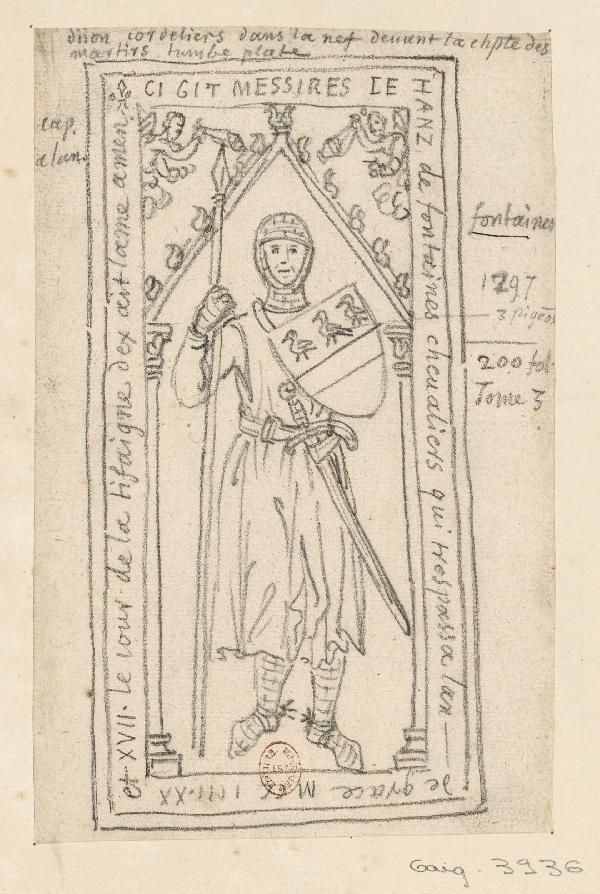 dijon cordeliers dans la nef deuant la chpte des
martirs tumbe plate
CI GIT MESSIRES IE
HANZ de fontaines cheualiers qui trespassa lan
de grace M CC IIII XX
et XVII le iour de la tifaigne dex ait lame amen
cap.
alan
fontaines
1297
3 pigeõs
200 fol
Tome 3
Gaig. 3936